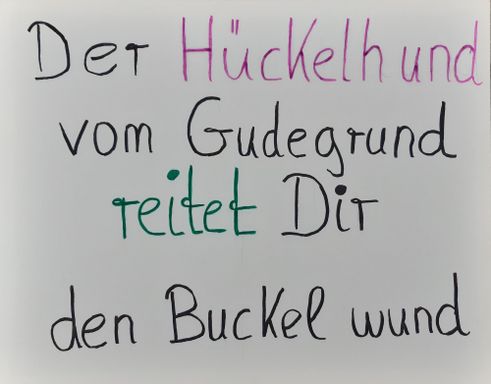 Der Hückelhund
vom Gudegrund
reitet Dir
den Buckel wund